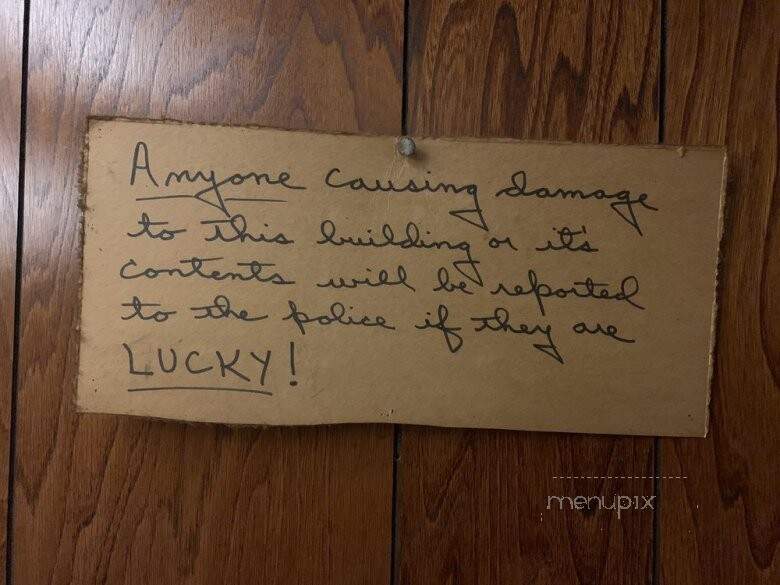 Anyone causing damage
to this building or it's
contents will be reported
to the police if they are
LUCKY!
menupix